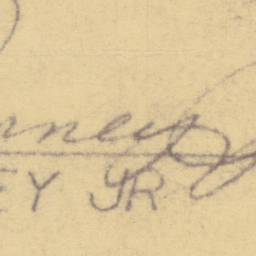 nney Jr
EY JR